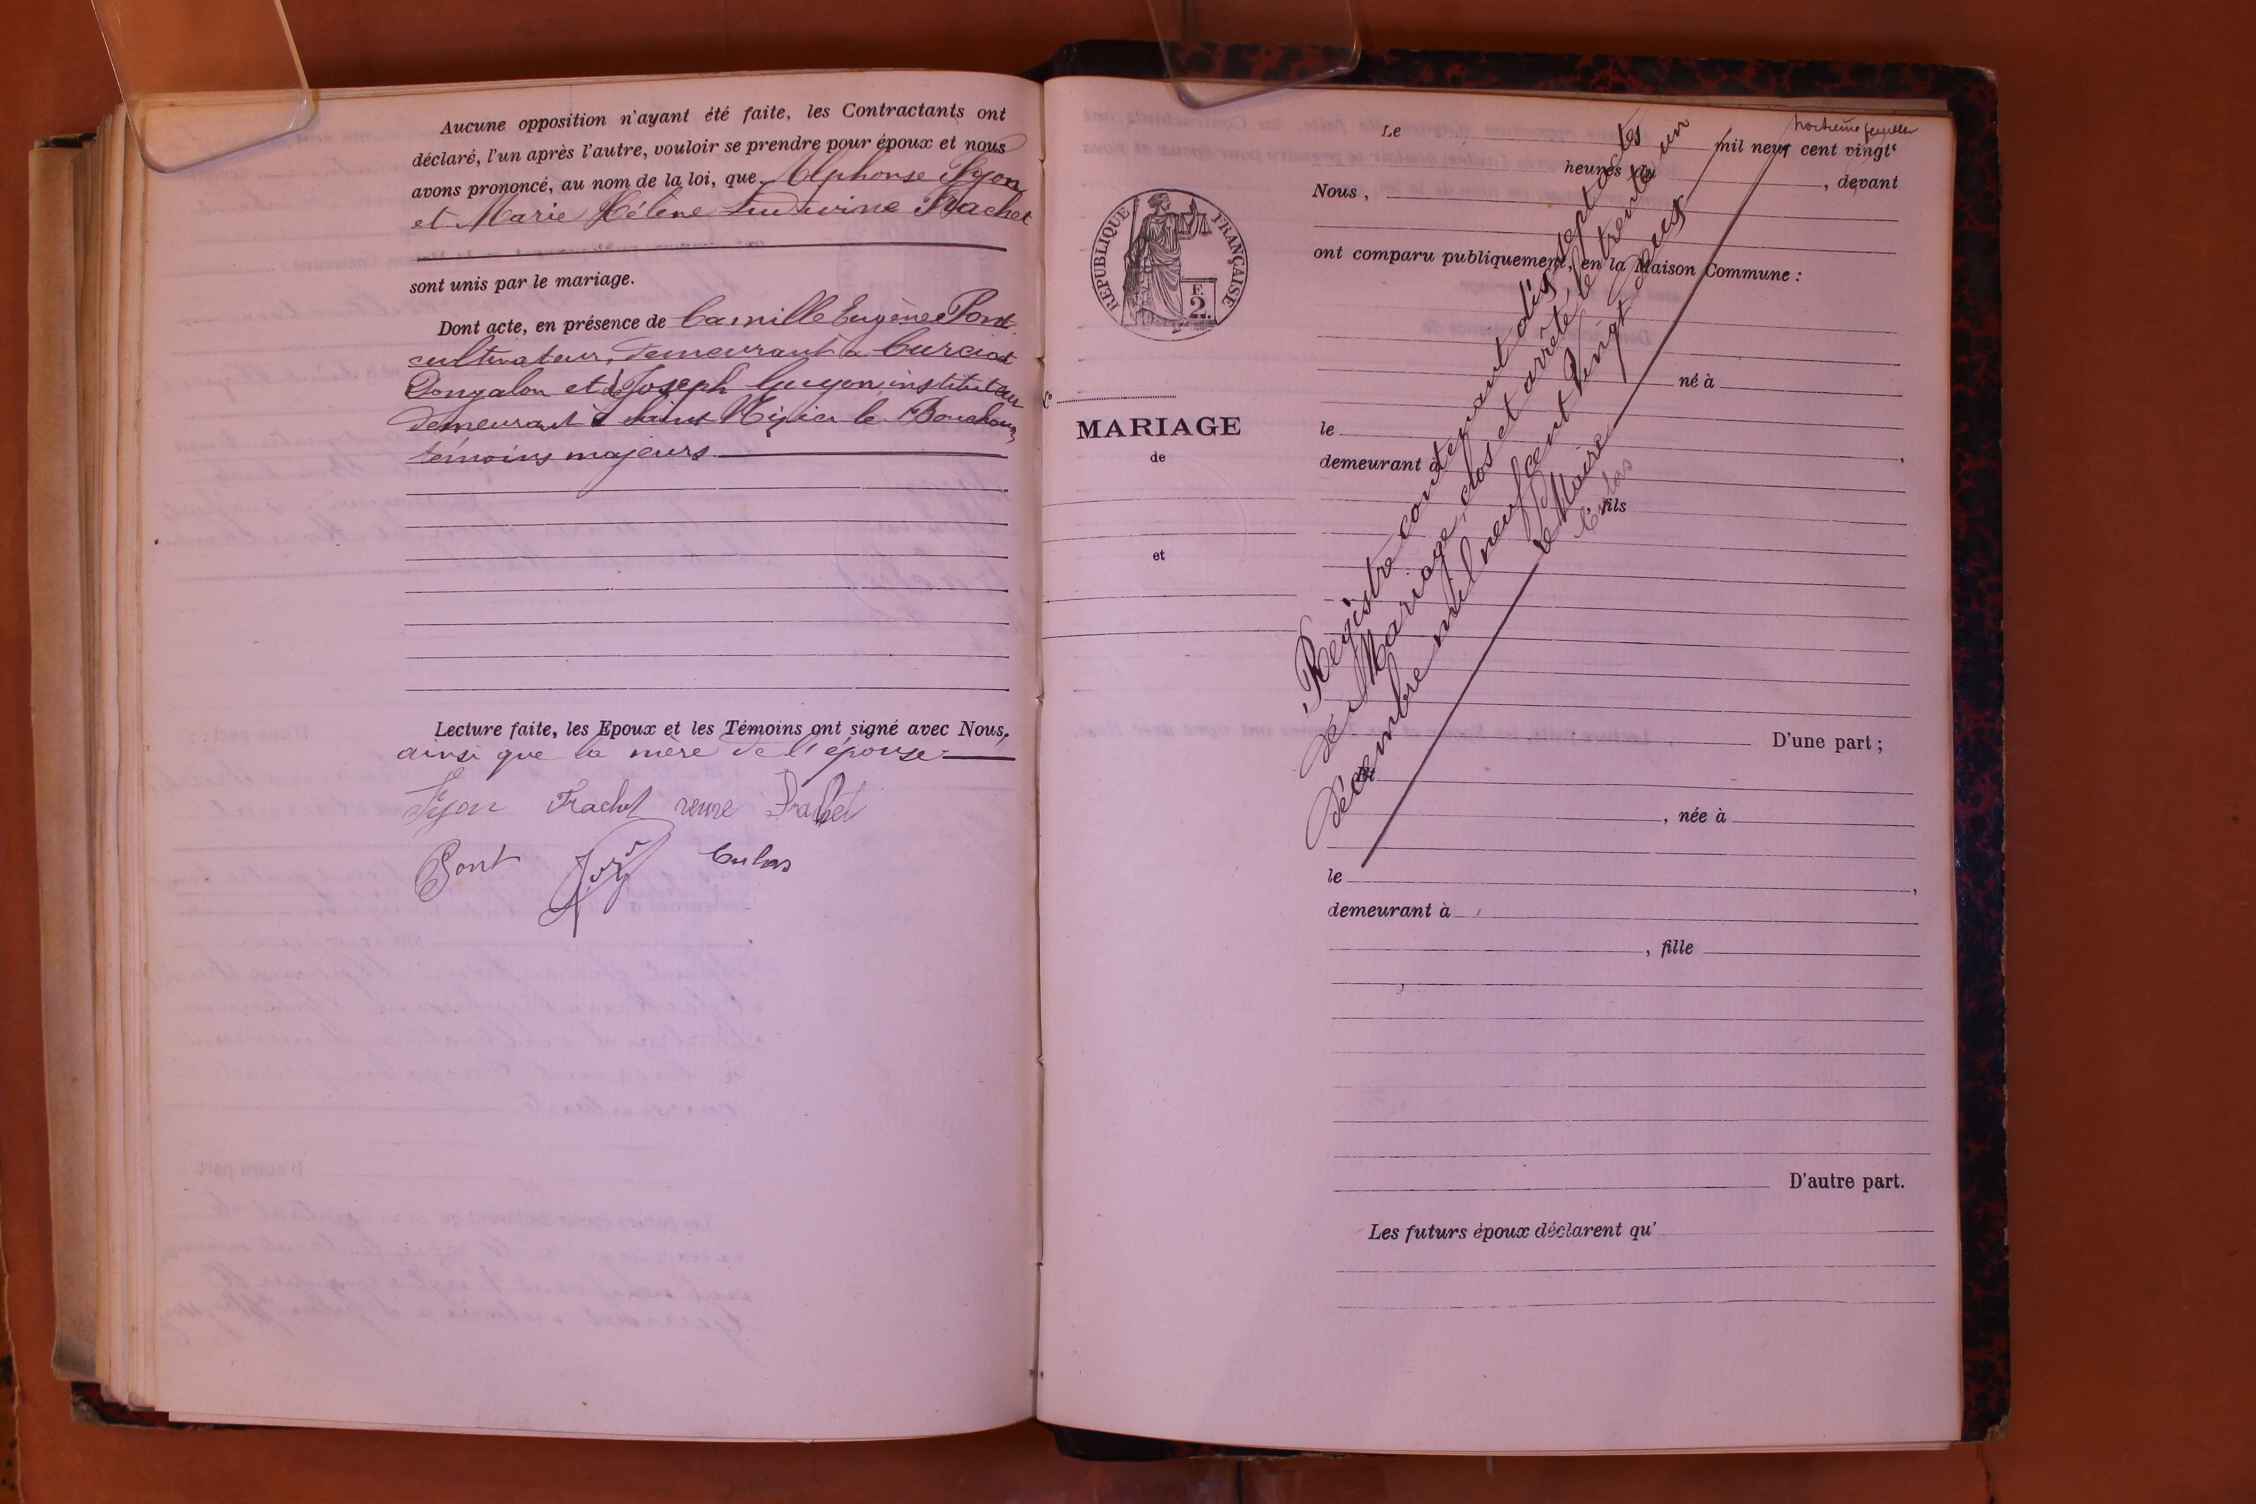 Aucune opposition n'ayant été faite, les Contractants ont
déclaré, l'un après l'autre, vouloir se prendre pour époux et nous
avons prononcé, au nom de la loi, que Alphonse Fyon
et Marie Hélène Ludivine Frachet
sont unis par le mariage.
Dont acte, en présence de Camille Eugène Pont
cultivateur, demeurant à Curciat
Dongalon et de Joseph Guyon, instituteur
demeurant à Saint Nizier le Bouchoux,
témoins majeurs
Lecture faite, les Epoux et les Témoins ont signé avec Nous,
ainsi que la mère de l'épouse
Fyon Frachet veuve Frachet
Pont
MARIAGE
de
et
RÉPUBLIQUE FRANÇAISE
F.
2.
feuillet
Le mil neuf cent vingt
heures du , devant
Nous ,
ont comparu publiquement, en la Maison Commune :
né à
le
demeurant à
fils
D'une part ;
Et
, née à
le ,
demeurant à
, fille
D'autre part.
Les futurs époux déclarent qu'
Registre contenant dix sept actes
de Mariage, clos et arrêté, le trente un
décembre mil neuf cent Vingt deux
Le Maire